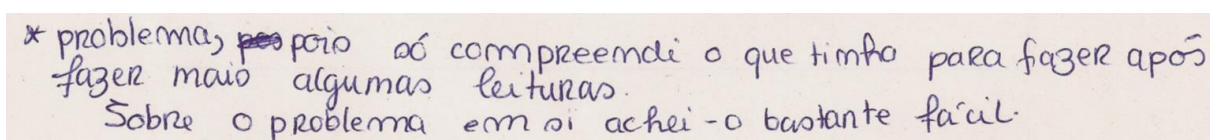 * problema, pois só compreendi o que tinha para fazer após
fazer mais algumas leituras.
Sobre o problema em si achei-o bastante fácil.